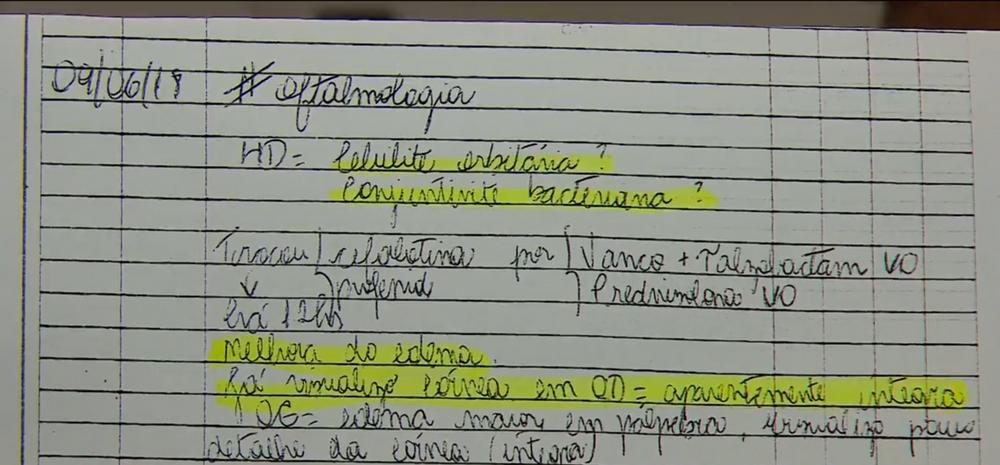 09/06/18 # oftalmologia
HD = Celulite orbitária ?
Conjuntivite bacteriana ?
Trocou cefalotina por Vanco + Tazobactam VO
↓ profenid Prednisolona VO
há 12hs
Melhora do edema.
Já visualizo córnea em OD = aparentemente íntegra
OE = edema maior em pálpebra, visualizo pouco
detalhe da córnea (íntegra)